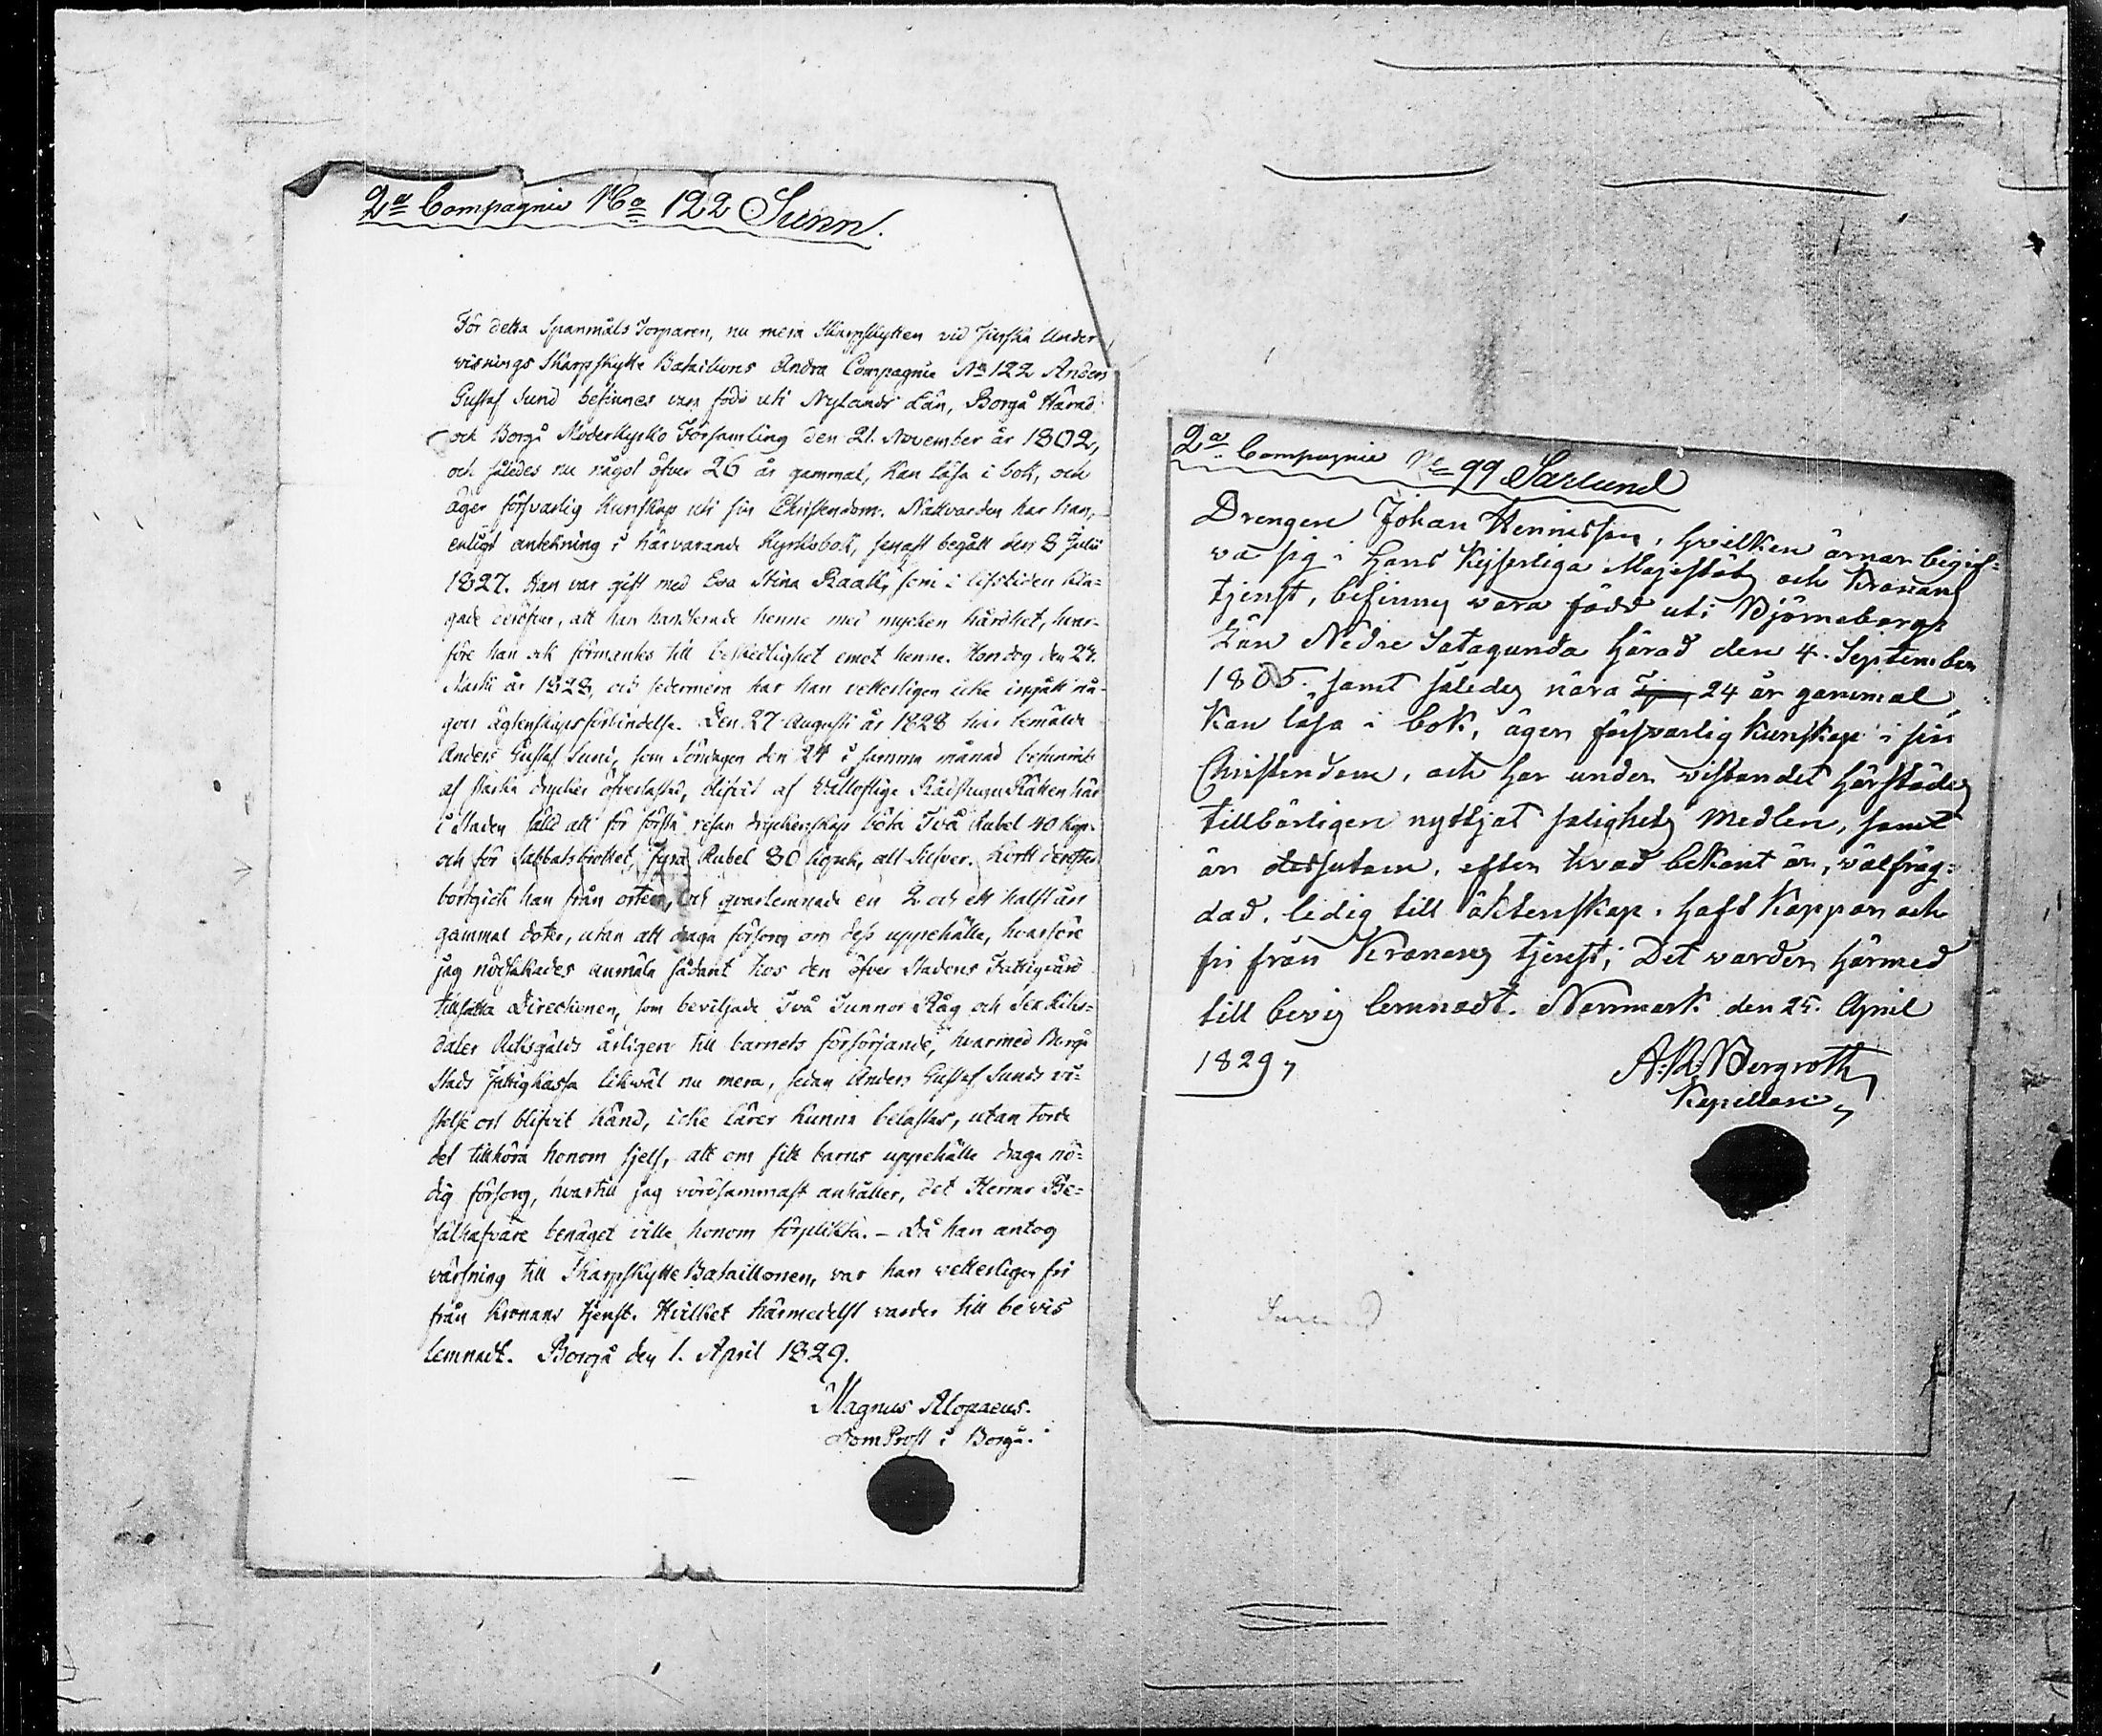 2ª Compagnie No 122 Sunn.
För detta Spanmåls Torparen, nu mera Skarpskytten vid Finska Under
visnings Skarpskytte Batailions Andra Compagnie No 122 Anders
Gustaf Sund befinnes vara född uti Nylands Län, Borgå Härad
och Borgå Moderkyrko Församling den 21. November år 1802,
och således nu något öfver 26 år gammal, kan läsa i bok, och
äger försvarlig kunskap uti sin Christendom. Nattvarden har han,
enligt antekning i härvarande Kyrkobok, senast begått den 8 Julii
1827. Han var gift med Eva Stina Raak, som i lifstiden kla-
gade deröfver, att han handterade henne med mycken hårdhet, hvar-
före han ock förmantes till beskedlighet emot henne. Hon dog den 27.
Martii år 1828, och sedermera har han vetterligen icke ingått nå-
gon äktenskapsförbindelse. Den 27 Augusti år 1828 har bemälde
Anders Gustaf Sund, som Söndagen den 24 i samma månad befunnits
af starka drycker öfverlastad, blifvit af Vällofliga Rådstugu Rätten här
i Staden fälld att för första resan dryckenskap böta Två Rubel 40 Kop.
och för Sabbatsbrottet Fyra Rubel 80 kopek, allt Silfver. Kort derefter
bortgick han från orten, och qvarlemnade en 2 och ett halft års
gammal dotter, utan att draga försorg om dess uppehälle, hvarföre
jag nödsakades anmäla sådant hos den öfver Stadens Fattigvård
tillsatta Directionen, som beviljade Två Tunnor Råg och Sex Riks-
daler Riksgälds årligen till barnets försörjande, hvarmed Borgå
Stads Fattigkassa likväl nu mera, sedan Anders Gustaf Sunds vi-
stelse ort blifvit känd, icke lärer kunna belastas, utan torde
det tillhöra honom sjelf, att om sitt barns uppehälle draga nö-
dig försorg, hvartill jag vördsammast anhåller, det Herrar Be-
fälhafvare benäget ville honom förplikta. – Då han antog
värfning till Skarpskytte Bataillonen, var han vetterligen fri
från Kronans tjenst. Hvilket härmedelst varder till bevis
lemnadt. Borgå den 1. April 1829.
Magnus Alopaeus.
DomProst i Borgå.
2ª Compagnie No 99 Sarlund
Drengen Johan Henriksson, hvilken ärnar begif-
va sig i Hans Kejserliga Majestäts och Kronans
tjenst, befinnes vara född uti Björneborgs
Län Nedre Satagunda Härad den 4. September
1805. samt således nära 24 år gammal,
Kan läsa i bok, äger försvarlig kunskap i sin
Christendom, och har under vistandet härstädes
tillbörligen nyttjat salighets medlen, samt
är dessutom, efter hvad bekant är, välfräg-
dad, ledig till äktenskap, haft Koppor och
fri från Kronans tjenst; Det varder härmed
till bevis lemnadt. Norrmark den 25. April
1829,
A. W. Bergroth
Kapellan